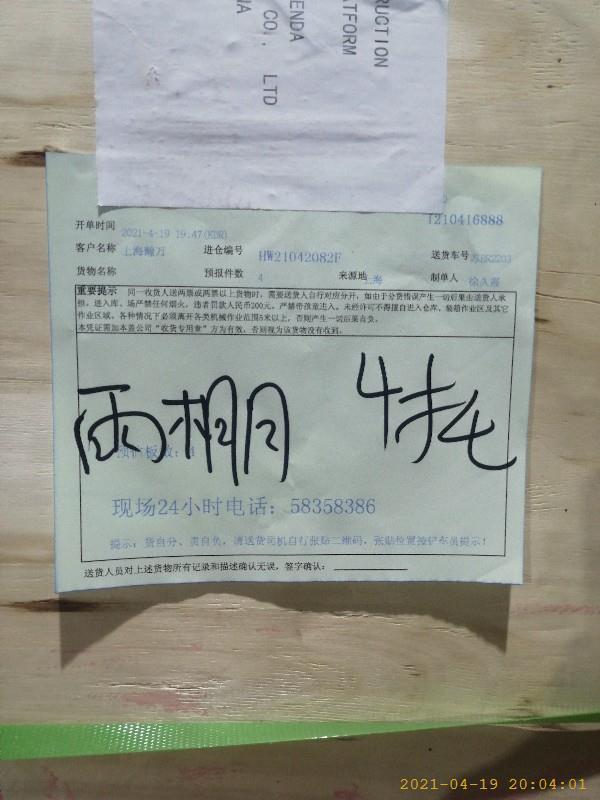 RUCTION
ATFORM
ENDA
CO., LTD
NA
1210416888
开单时间 2021-4-19 19:47(KDR)
客户名称 上海瀚万 进仓编号 HW21042082F 送货车号
货物名称 预报件数 4 来源地 上海 制单人 徐久霞
重要提示 同一收货人送两票或两票以上货物时，需要送货人自行对应分开，如由于分货错误产生一切后果由送货人承
担。进入库、场严禁任何烟火，违者罚款人民币200元，严禁带孩童进入。未经许可不得擅自进入仓库、装箱作业区及其它
作业区域。各种情况下必须离开各类机械作业范围5米以上，否则产生一切后果自负。
本凭证需加本盖公司“收货专用章”方为有效，否则视为该货物没有收到。
雨棚 4托
预估板数：4
现场24小时电话：58358386
提示：货自分、责自负，请送货司机自行张贴二维码，张贴位置按铲车员提示！
送货人员对上述货物所有记录和描述确认无误，签字确认：
2021-04-19 20:04:01